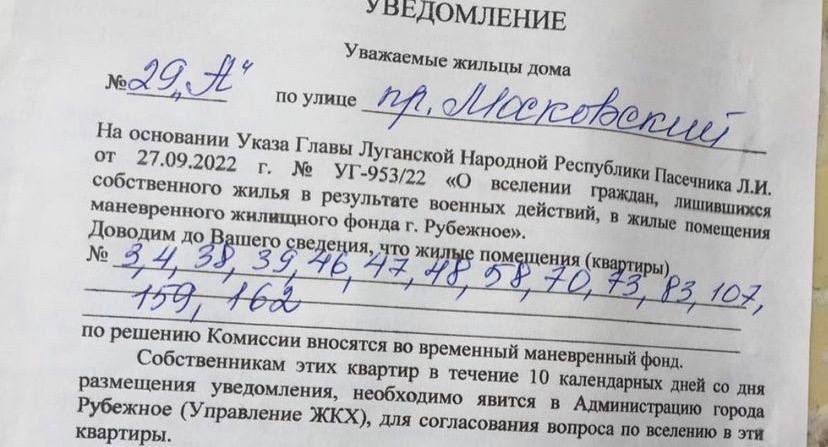 УВЕДОМЛЕНИЕ
Уважаемые жильцы дома
№ 29 „А“ по улице пр. Московский
На основании Указа Главы Луганской Народной Республики Пасечника Л.И.
от 27.09.2022 г. № УГ-953/22 «О вселении граждан, лишившихся
собственного жилья в результате военных действий, в жилые помещения
маневренного жилищного фонда г. Рубежное».
Доводим до Вашего сведения, что жилые помещения (квартиры)
№ 3, 4, 38, 39, 46, 47, 48, 58, 70, 73, 83, 107,
159, 162
по решению Комиссии вносятся во временный маневренный фонд.
Собственникам этих квартир в течение 10 календарных дней со дня
размещения уведомления, необходимо явится в Администрацию города
Рубежное (Управление ЖКХ), для согласования вопроса по вселению в эти
квартиры.